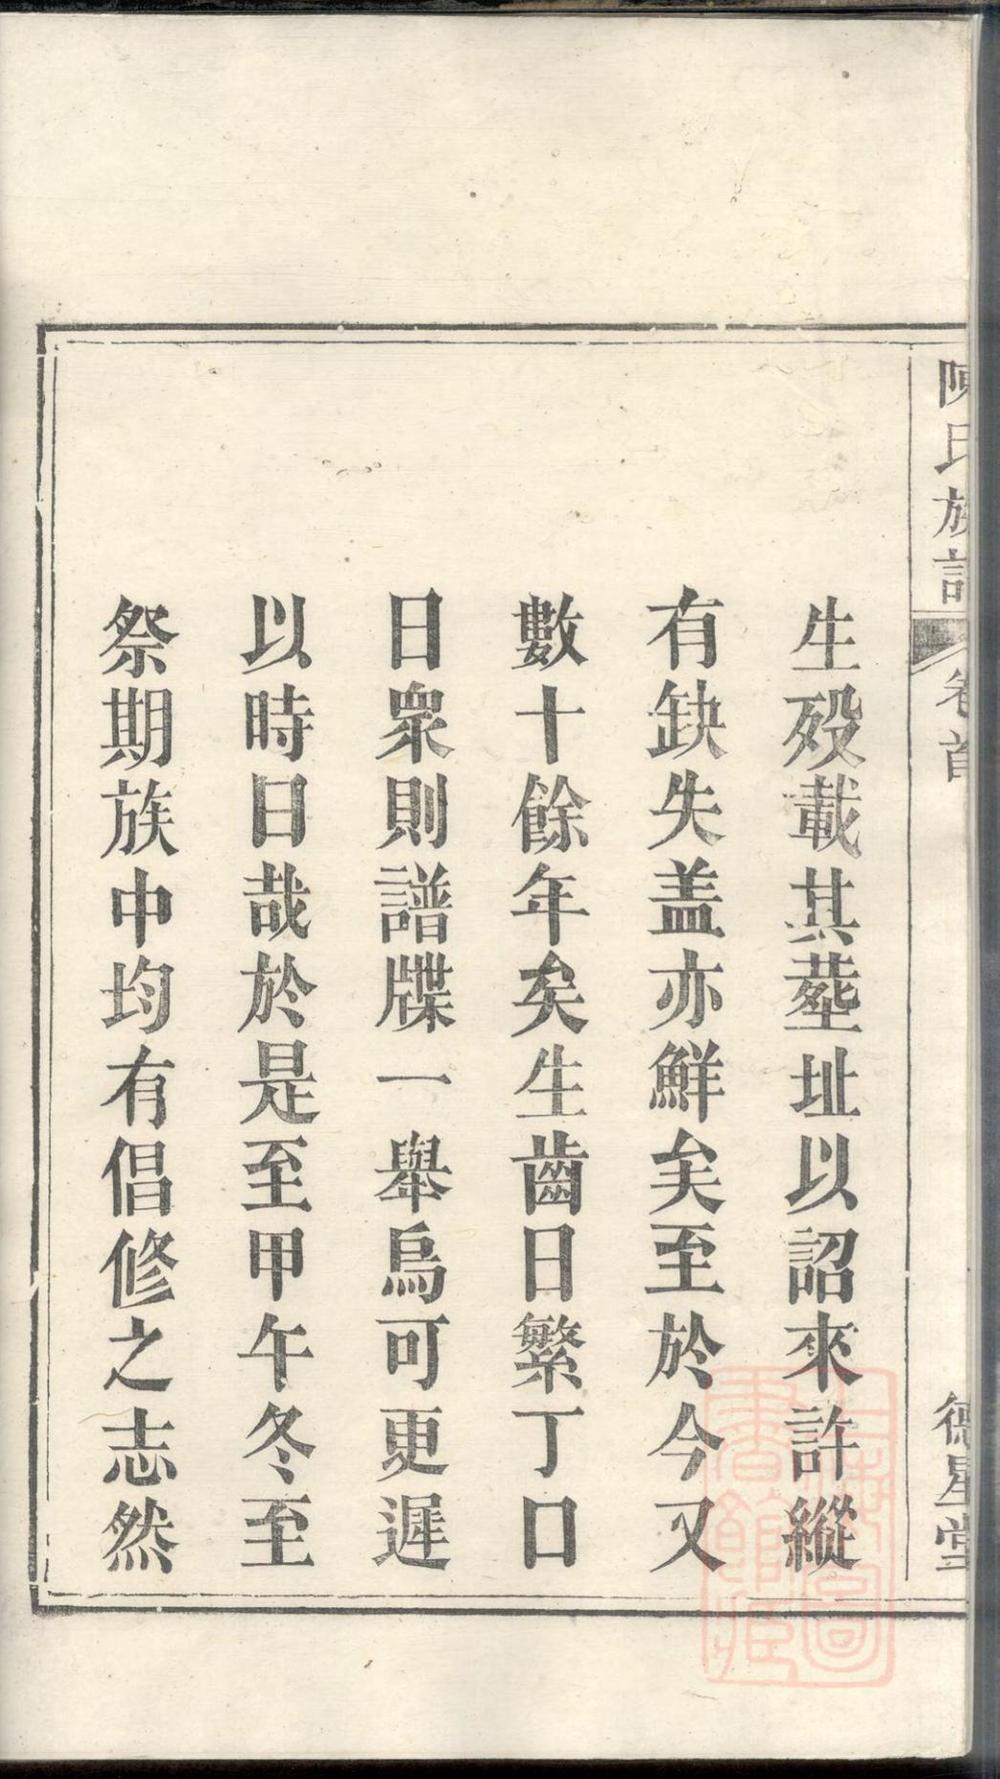 陳氏族譜
卷首
德星堂
生殁載其塟址以詔來許縱
有缺失盖亦鮮矣至於今又
數十餘年矣生齒日繁丁口
日衆則譜牒一舉烏可更遲
以時日哉於是至甲午冬至
祭期族中均有倡修之志然